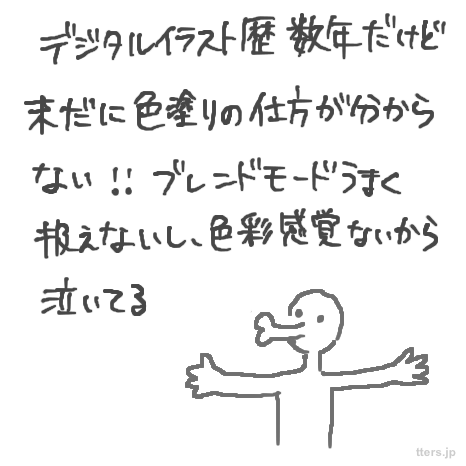 デジタルイラスト歴 数年だけど
未だに色塗りの仕方が分から
ない!! ブレンドモードうまく
扱えないし、色彩感覚ないから
泣いてる
tters.jp